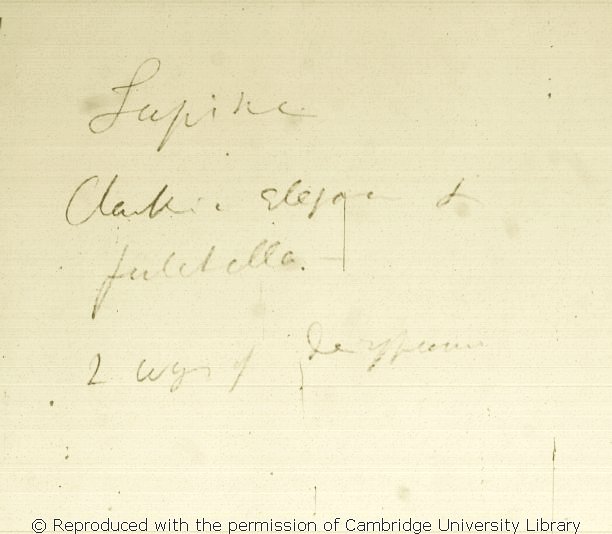 Lupine
Clarkia elegans &
pulchella. —
2 ways of
© Reproduced with the permission of Cambridge University Library